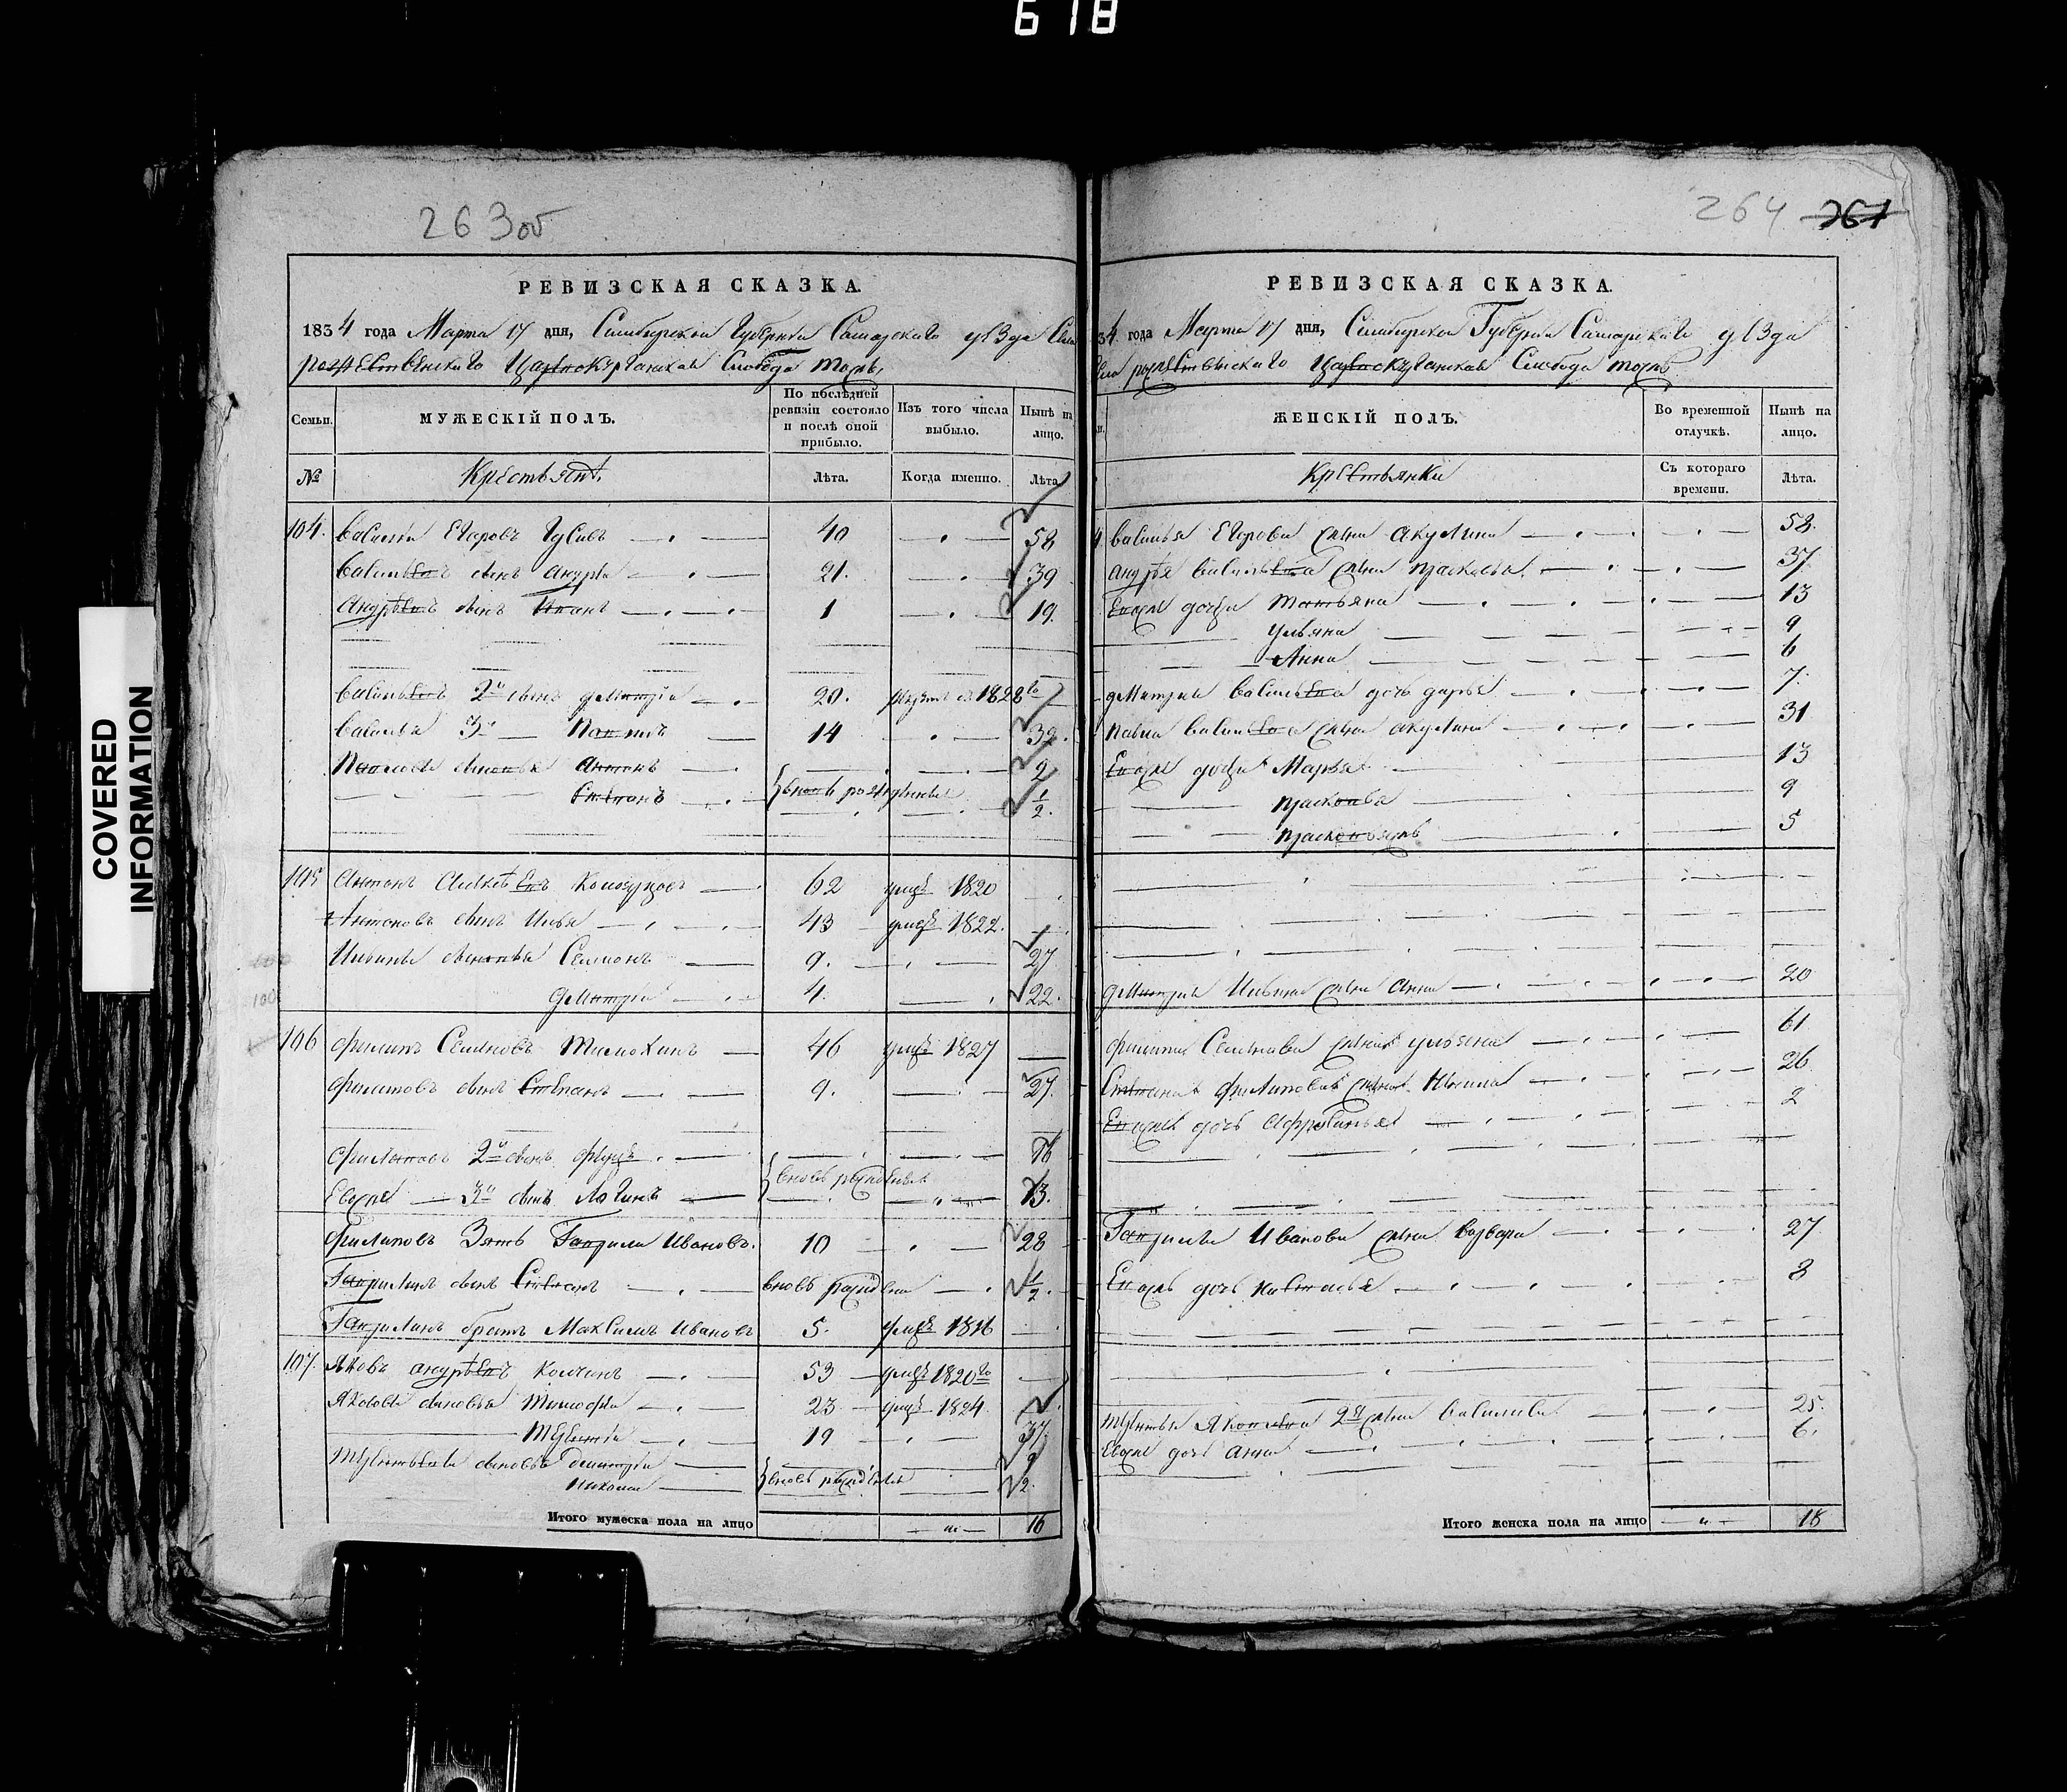 618
COVERED
INFORMATION
263об
РЕВИЗСКАЯ СКАЗКА.
1834 года Марта 17 дня, Симбирской Губерніи Самарского уѣзда Села
рождественского Царевокурганская Слобода тожъ,
Семьи.
МУЖЕСКІЙ ПОЛЪ.
По послѣдней ревизіи состояло и послѣ оной прибыло.
Изъ того числа выбыло.
Нынѣ на лицо.
№
Крестьянѣ.
Лѣта.
Когда именно.
Лѣта
104. Василій Егоровъ 40 58
Васильевъ сынъ андрѣй 21. 39
Андрѣевъ сынъ Иванъ 1 19.
Васильевъ 2й сынъ дмитрій 20. 1828го
Васильевъ 3й Павелъ 14 32.
Павловы сыновья антонъ 9
Степанъ вновь рожденные 1/2.
105 Антонъ Алексѣевъ 62 умре 1820
Антоновъ сынъ Илья 43 умре 1822.
Ильины сыновья Семионъ 9. 27
дмитрій 4. 22.
106 филипъ Семеновъ 46 умре 1827
филиповъ сынъ Степанъ 9. 27.
филиповъ 2й сынъ 16
Евоже 3й сынъ Логинъ вновь рожденные 13.
филиповъ Зять Гаврила Ивановъ. 10 28
Гаврилинъ сынъ Степанъ вновь рожденъ 1/2.
Гаврилинъ братъ Максимъ Ивановъ 5. умре 1816
107. Яковъ андрѣевъ 53 умре 1820го
Яковы сыновья тимофей 23 умре 1824
терентій 19 37.
терентьевы сыновья дмитрій 9
никола вновь рожденные 2.
Итого мужеска пола на лицо 16
264 261
РЕВИЗСКАЯ СКАЗКА.
34 года Марта 17 дня, Симбирской Губерніи Самарского уѣзда
Села рождественского Царевокурганская Слобода тожъ
ЖЕНСКІЙ ПОЛЪ.
Во временной отлучкѣ.
Нынѣ на лицо.
Крестьянки
Съ котораго времени.
Лѣта.
Василья Егорова жена акулина 58.
андрѣя Васильева жена прасковья 37.
Евоже дочери татьяна 13
Ульяна 9
Анна 6
дмитрія Васильева дочь дарья 7.
павла Васильева жена акулина 31
Евоже дочери Марья 13
прасковья 9
прасковьяжъ 5
дмитрія Ильина жена анна 20
филипа Семенова жена ульяна 61
Степана филипова жена 26
Евоже дочь Афросинья 2
Гаврилы Иванова жена варвара 27
Евожъ дочь настасья 8
терентья Яковлева 2я жена василиса 25.
Евоже дочь анна 6.
Итого женска пола на лицо 18